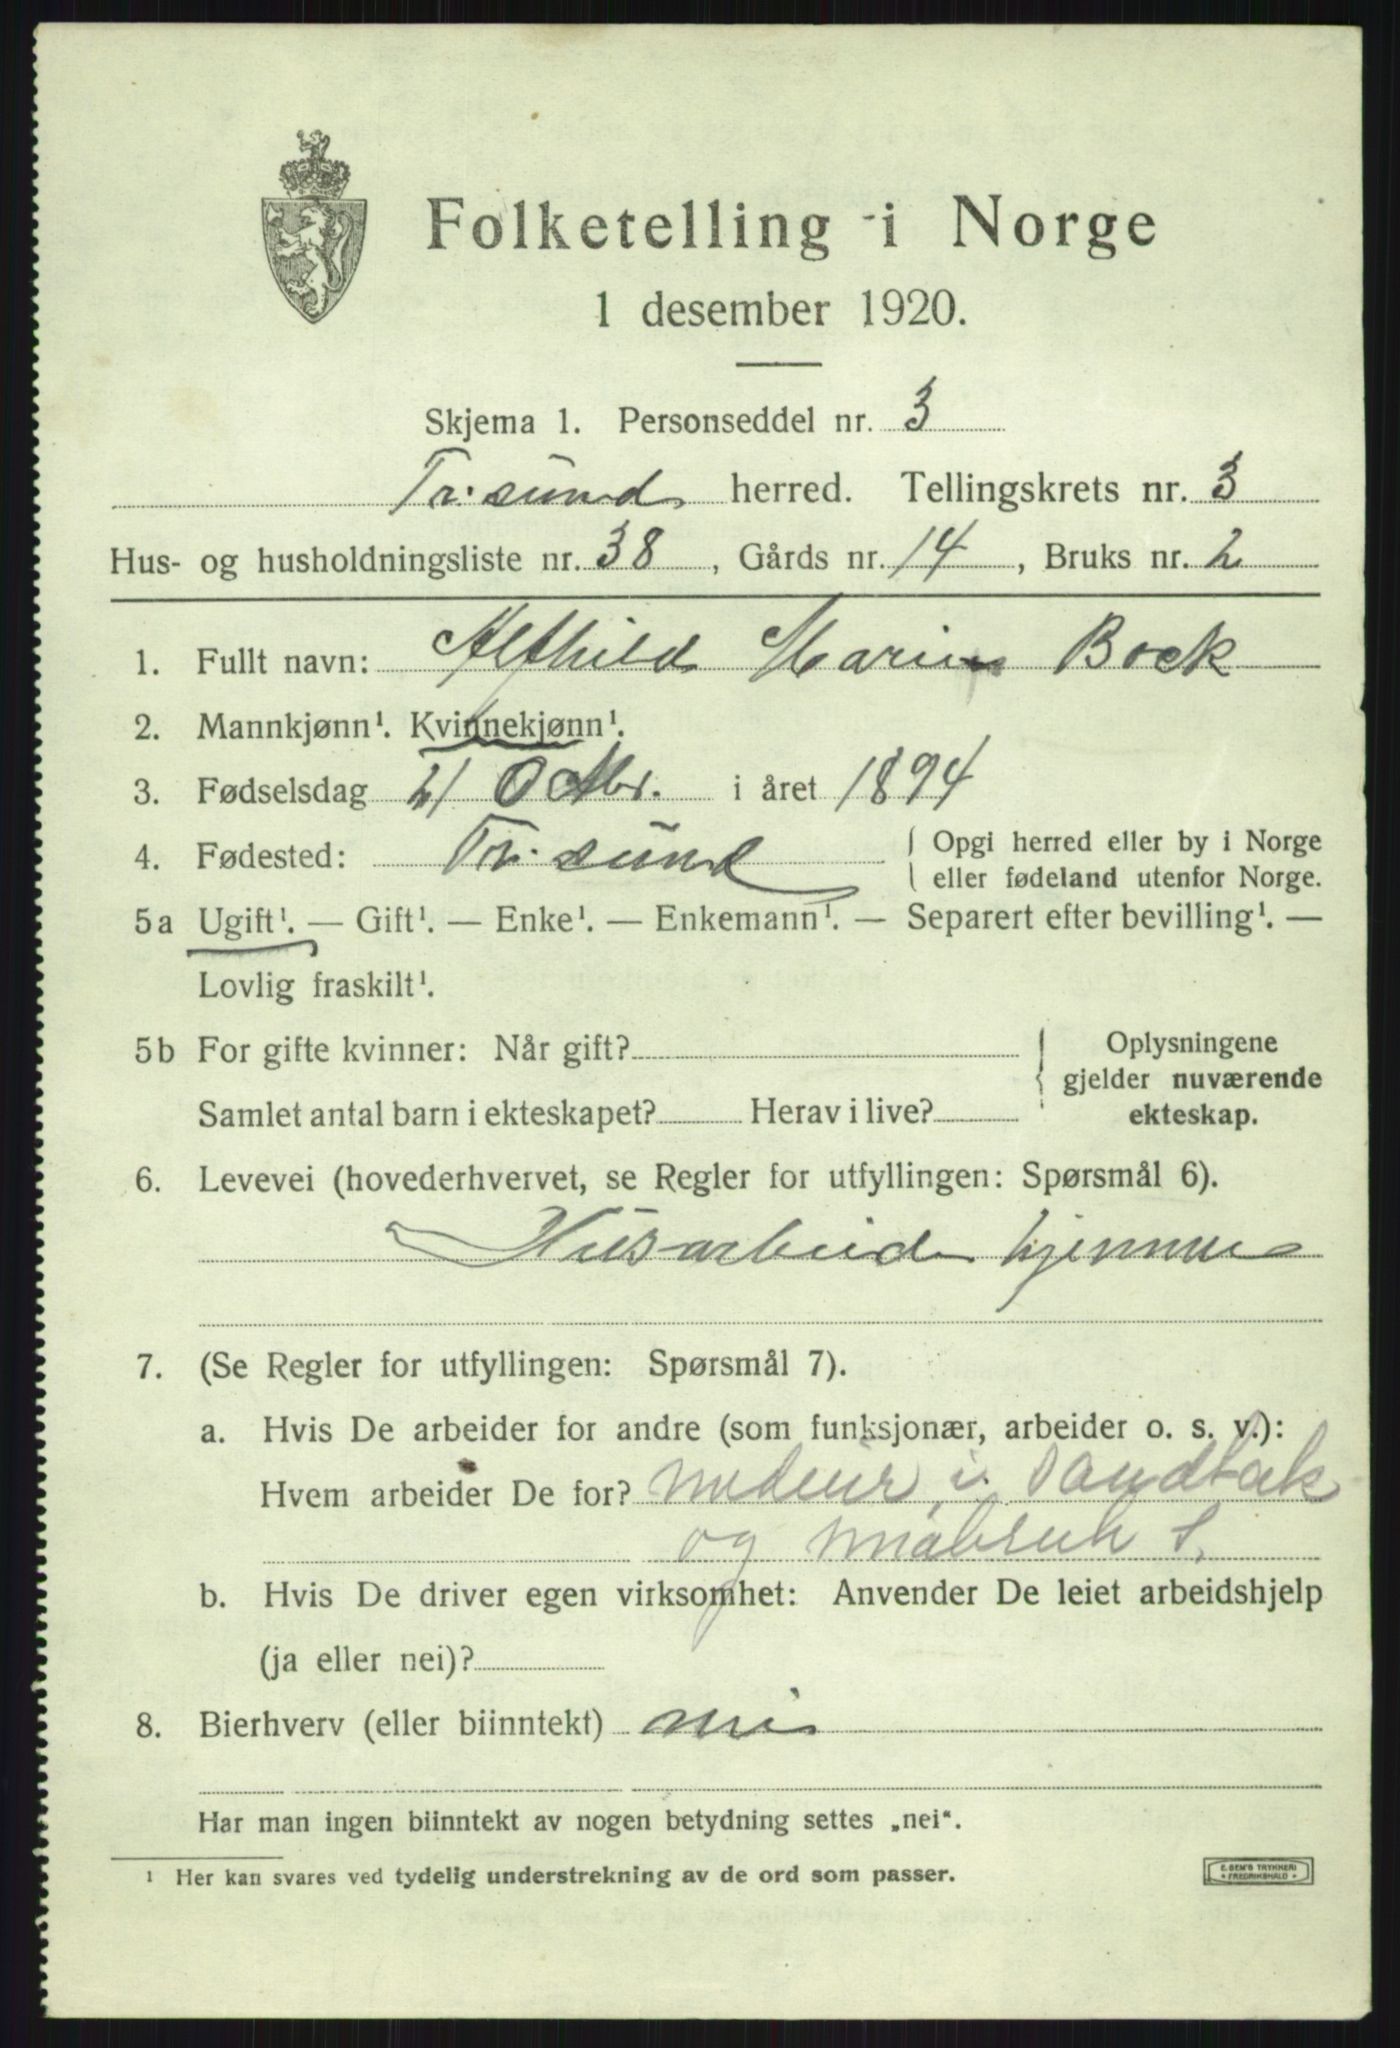 Folketelling i Norge
1 desember 1920.
Skjema 1. Personseddel nr. 3
Tr.sund herred. Tellingskrets nr. 3
Hus- og husholdningsliste nr. 38, Gårds nr. 14, Bruks nr. 2
1. Fullt navn: Alfhild Marie Bock
2. Mannkjønn¹. Kvinnekjønn¹.
3. Fødselsdag 21 Octbr. i året 1894
4. Fødested: Tr.sund { Opgi herred eller by i Norge
eller fødeland utenfor Norge.
5a Ugift¹. — Gift¹. — Enke¹. — Enkemann¹. — Separert efter bevilling¹. —
Lovlig fraskilt¹.
5b For gifte kvinner: Når gift? { Oplysningene
gjelder nuværende
Samlet antal barn i ekteskapet? Herav i live? ekteskap.
6. Levevei (hovederhvervet, se Regler for utfyllingen: Spørsmål 6).
Husarbeide hjemme
7. (Se Regler for utfyllingen: Spørsmål 7).
a. Hvis De arbeider for andre (som funksjonær, arbeider o. s. v.):
Hvem arbeider De for? i Sandtak
og
b. Hvis De driver egen virksomhet: Anvender De leiet arbeidshjelp
(ja eller nei)?
8. Bierhverv (eller biinntekt) nei
Har man ingen biinntekt av nogen betydning settes „nei“.
¹ Her kan svares ved tydelig understrekning av de ord som passer.
E. SEM'S TRYKKERI
FREDRIKSHALD